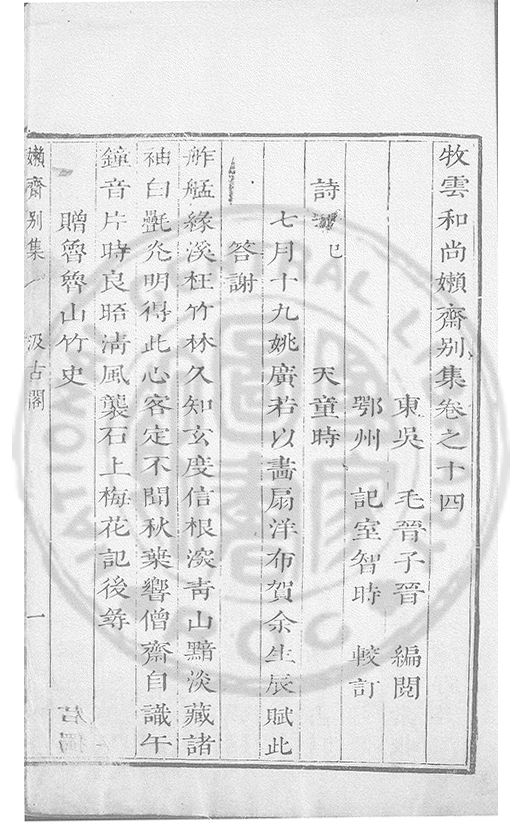 牧雲和尚嬾齋别集卷之十四
東吳　毛晉子晉　編閱
鄂州　記室智時　較訂
詩　巳　天童時
七月十九姚廣若以畵扇洋布賀余生辰賦此
答謝
舴艋緣溪枉竹林久知玄度信根深靑山黯淡藏諸
袖白㲲光明得此心客定不聞秋葉響僧齋自識午
鐘音片時良晤淸風襲石上梅花記後尋
贈魯魯山竹史
嬾齋别集　汲古閣　一